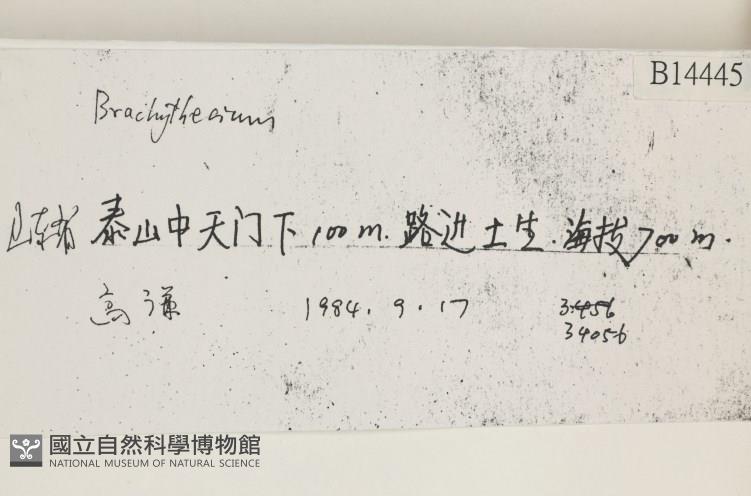 B14445
Brachythecium
山东省 泰山中天门下100m. 路边土生. 海拔700m.
高谦 1984. 9. 17 3456
34056
國立自然科學博物館
NATIONAL MUSEUM OF NATURAL SCIENCE